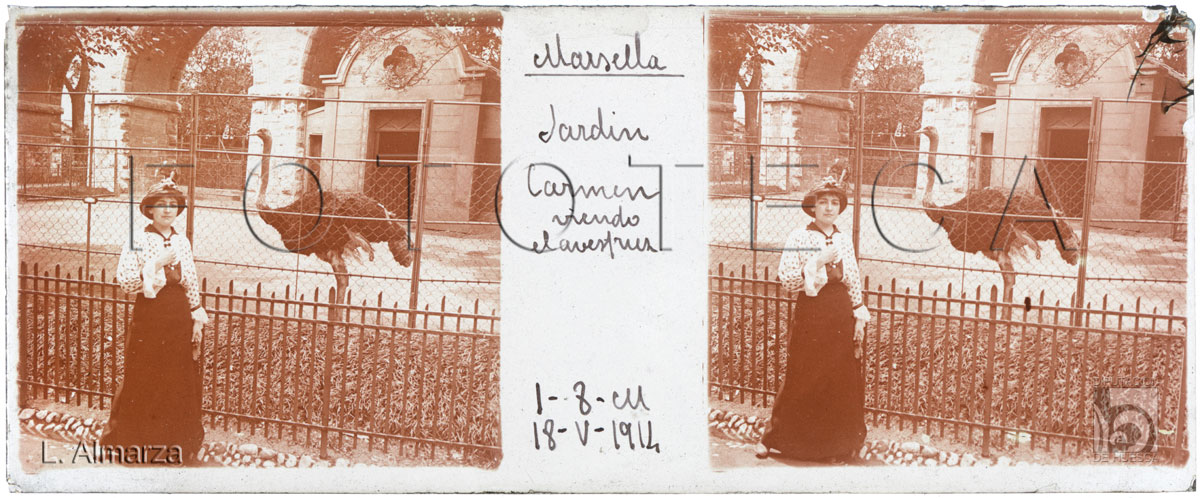 Marsella
Jardin
Carmen
viendo
el avestruz
1-8-M
18-V-1914
FOTOTECA
L. Almarza
DE HUESCA